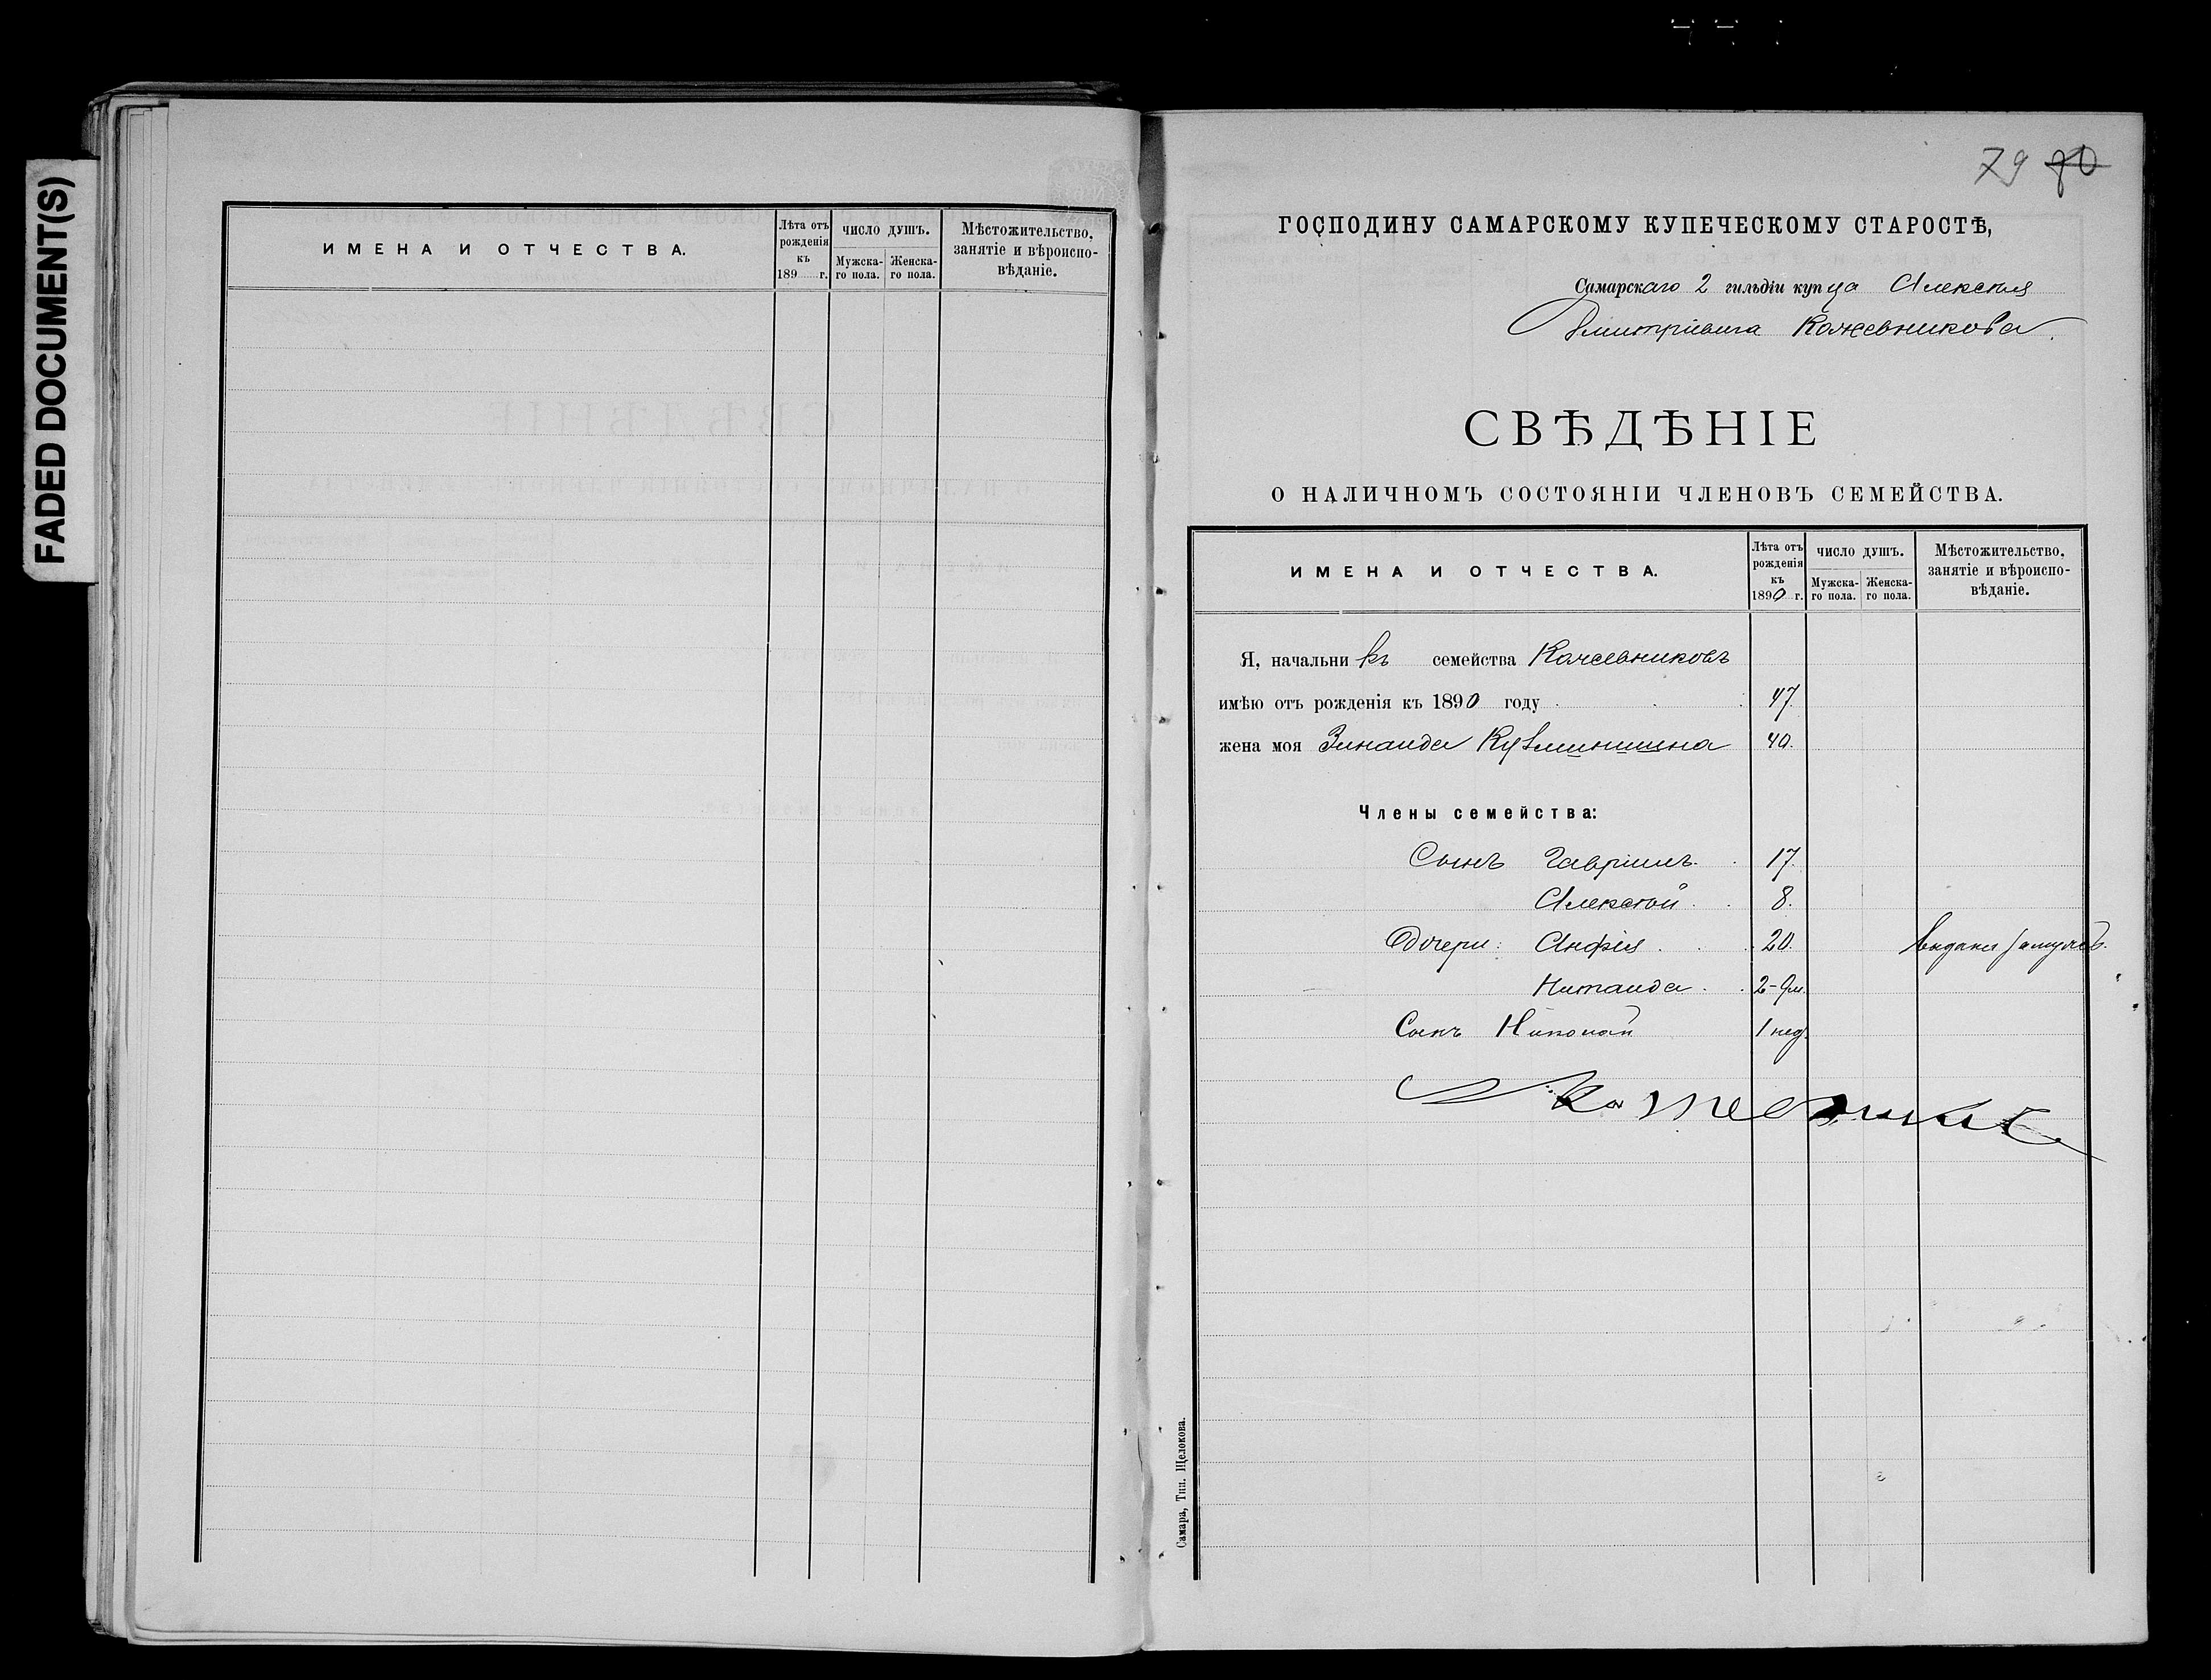 FADED DOCUMENT(S)
ИМЕНА И ОТЧЕСТВА.
Лѣта отъ рожденія къ 189 г.
ЧИСЛО ДУШЪ.
Мужска-го пола.
Женска-го пола.
Мѣстожительство, занятіе и вѣроиспо-вѣданіе.
79 80
ГОСПОДИНУ САМАРСКОМУ КУПЕЧЕСКОМУ СТАРОСТѢ,
Самарскаго 2 гильдіи купца Алексѣя
Дмитріевича Кожевникова
СВѢДѢНІЕ
О НАЛИЧНОМЪ СОСТОЯНІИ ЧЛЕНОВЪ СЕМЕЙСТВА.
ИМЕНА И ОТЧЕСТВА.
Лѣта отъ рожденія къ 1890 г.
ЧИСЛО ДУШЪ.
Мужска-го пола.
Женска-го пола.
Мѣстожительство, занятіе и вѣроиспо-вѣданіе.
Я, начальникъ семейства Кожевниковъ
имѣю отъ рожденія къ 1890 году 47.
жена моя Зинаида 40.
Члены семейства:
Сынъ Гавриилъ. 17.
Алексѣй. 8.
Дочери: Анфія. 20. выдана замужъ.
2-9м.
Сынъ Николай 1 нед.
Кожевников
Самара, Тип. Щелокова.